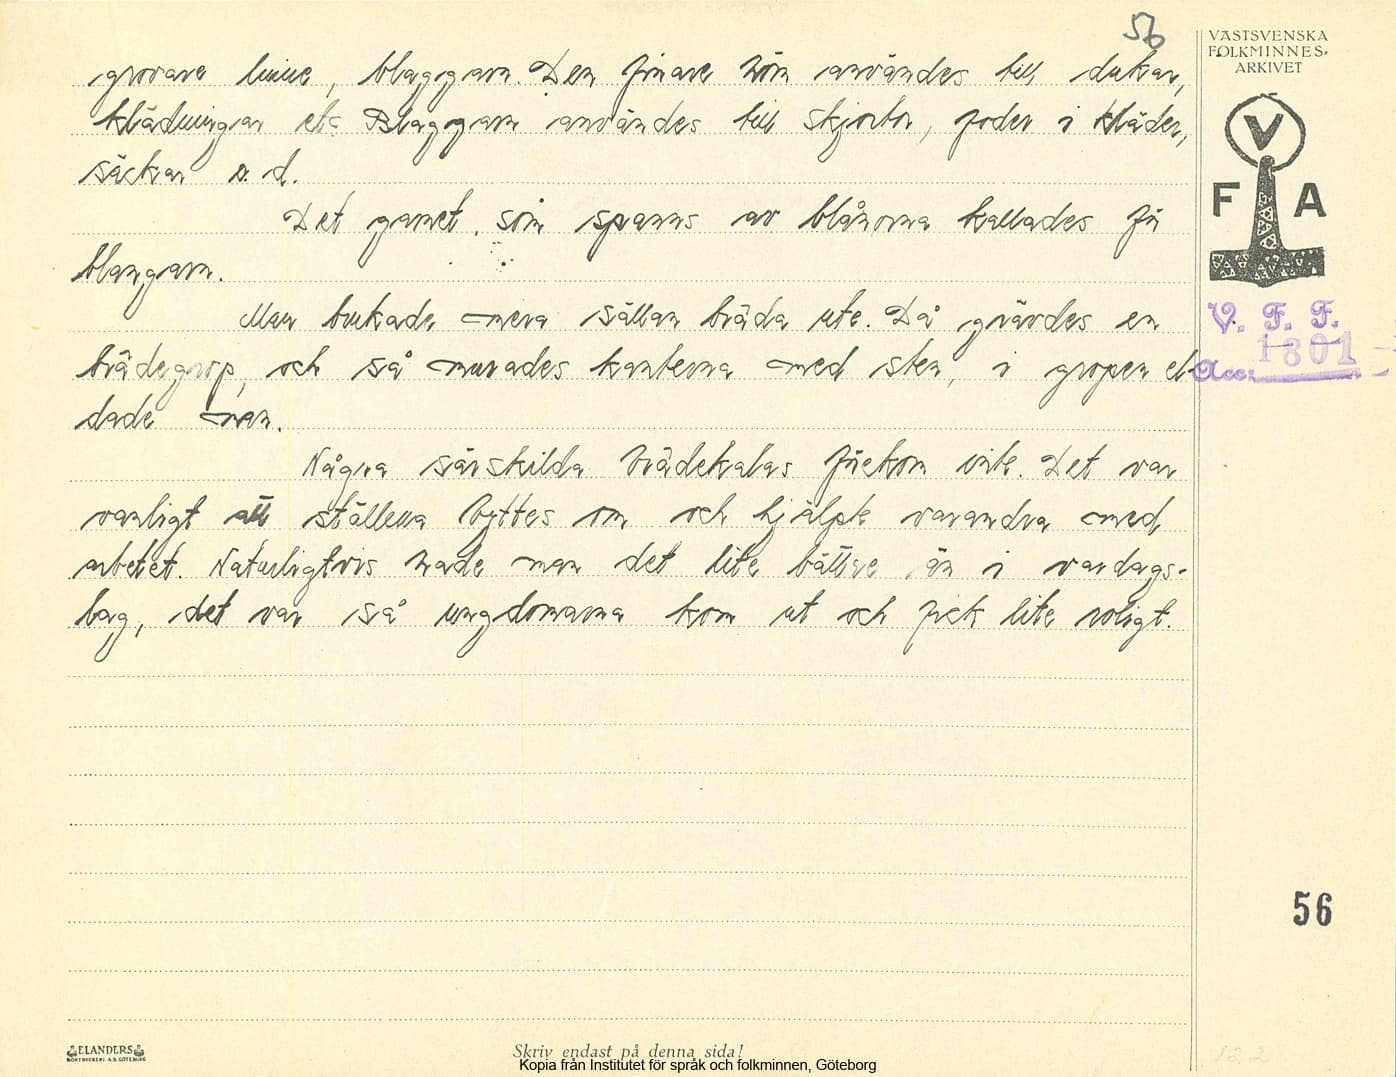 56
VÄSTSVENSKA
FOLKMINNES-
ARKIVET
V
F A
V. F. F.
1801
Acc:
grovare linne, blaggarn. Den finare som användes till dukar,
klädningar etc Blaggarn användes till skjortor, foder i kläder,
säckar o. d.
Det garnet, som spanns av blånorna kallades för
blangarn.
Man brukade mera sällan bråda ute. Då grävdes en
brådegrop, och så murades kanterna med sten, i gropen el-
dade man.
Några särskilda brådekalas förekom inte. Det var
vanligt att ställena byttes om och hjälpte varandra med
arbetet. Naturligtvis hade man det lite bättre än i vardags-
lag, det var så ungdomarna kom ut och fick lite roligt.
56
ELANDERS
BOKTRYCKERI A.B. GÖTEBORG
Skriv endast på denna sida!
Kopia från Institutet för språk och folkminnen, Göteborg